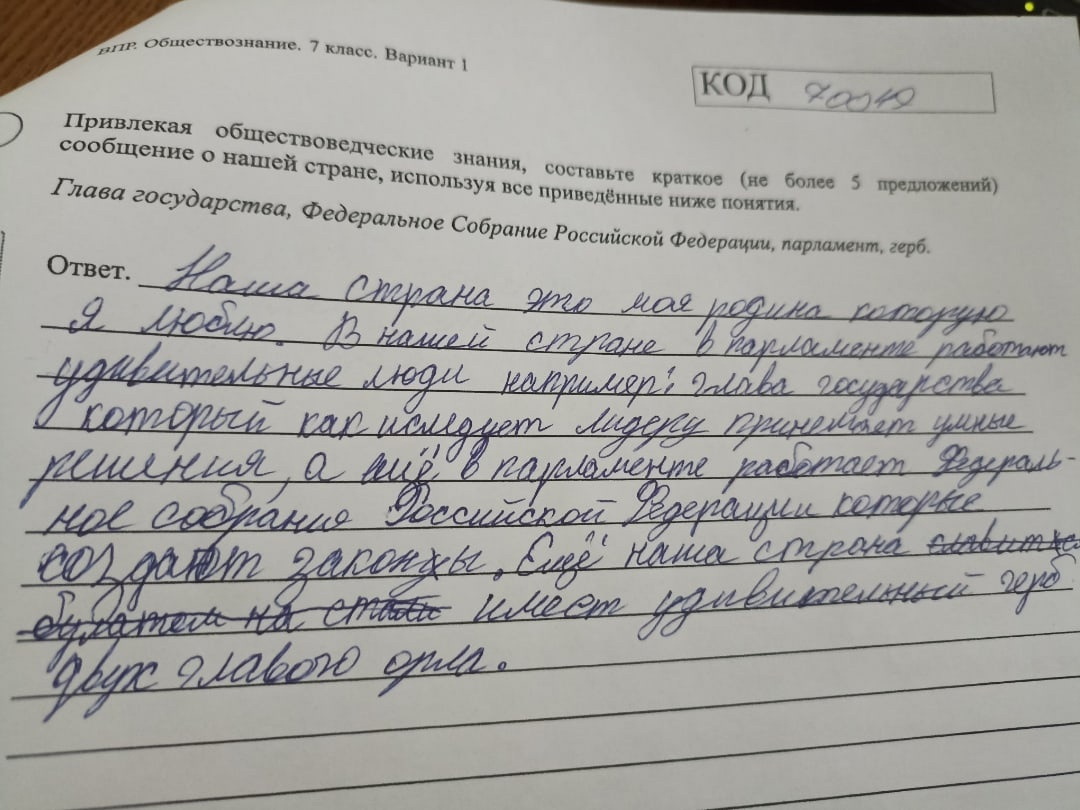 ВПР. Обществознание. 7 класс. Вариант 1
КОД 70049
Привлекая обществоведческие знания, составьте краткое (не более 5 предложений)
сообщение о нашей стране, используя все приведённые ниже понятия.
Глава государства, Федеральное Собрание Российской Федерации, парламент, герб.
Ответ. Наша страна это моя родина которую
я люблю. В нашей стране в парламенте работают
удивительные люди например: глава государства
который как и следует лидеру принемает умные
решения, а ещё в парламенте работает Федераль-
ное собрания Российской Федерации которые
создают законы. Ещё наша страна
имеет удивительный герб
двух главого орла.